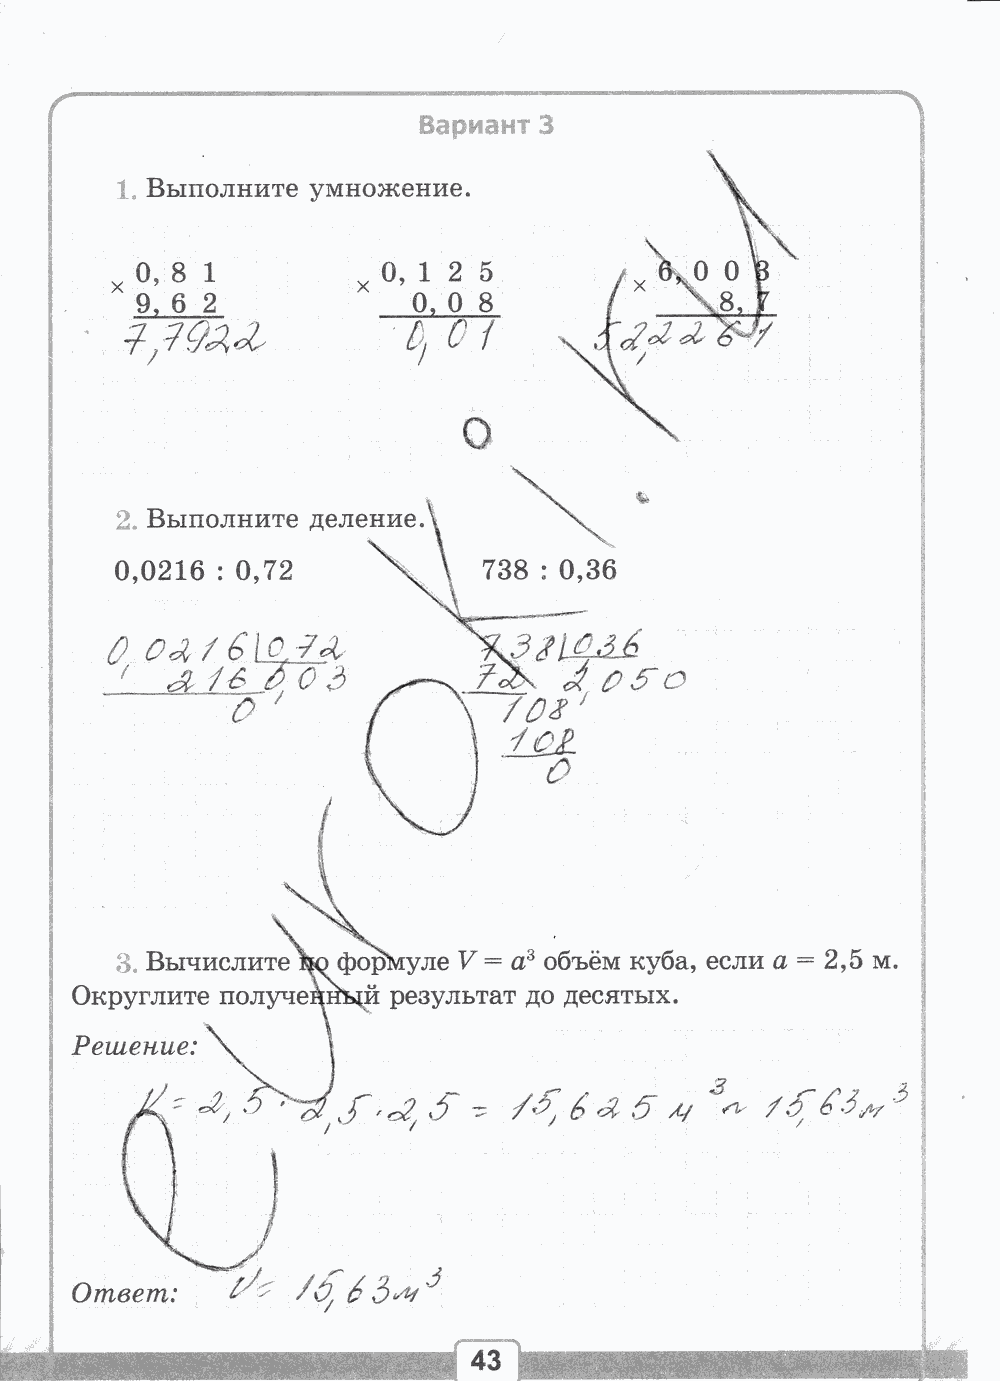 Вариант 3
1. Выполните умножение.
× 0,81
9,62
7,7922
× 0,125
0,08
0,01
× 6,003
8,7
52,2261
2. Выполните деление.
0,0216 : 0,72
738 : 0,36
0,0216 0,72
216 0,03
0
738 0,36
72 2,050
108
108
0
3. Вычислите по формуле V = a³ объём куба, если a = 2,5 м.
Округлите полученный результат до десятых.
Решение:
V = 2,5 · 2,5 · 2,5 = 15,625 м³ ~ 15,63 м³
Ответ: V = 15,63 м³
43
euroki.ru